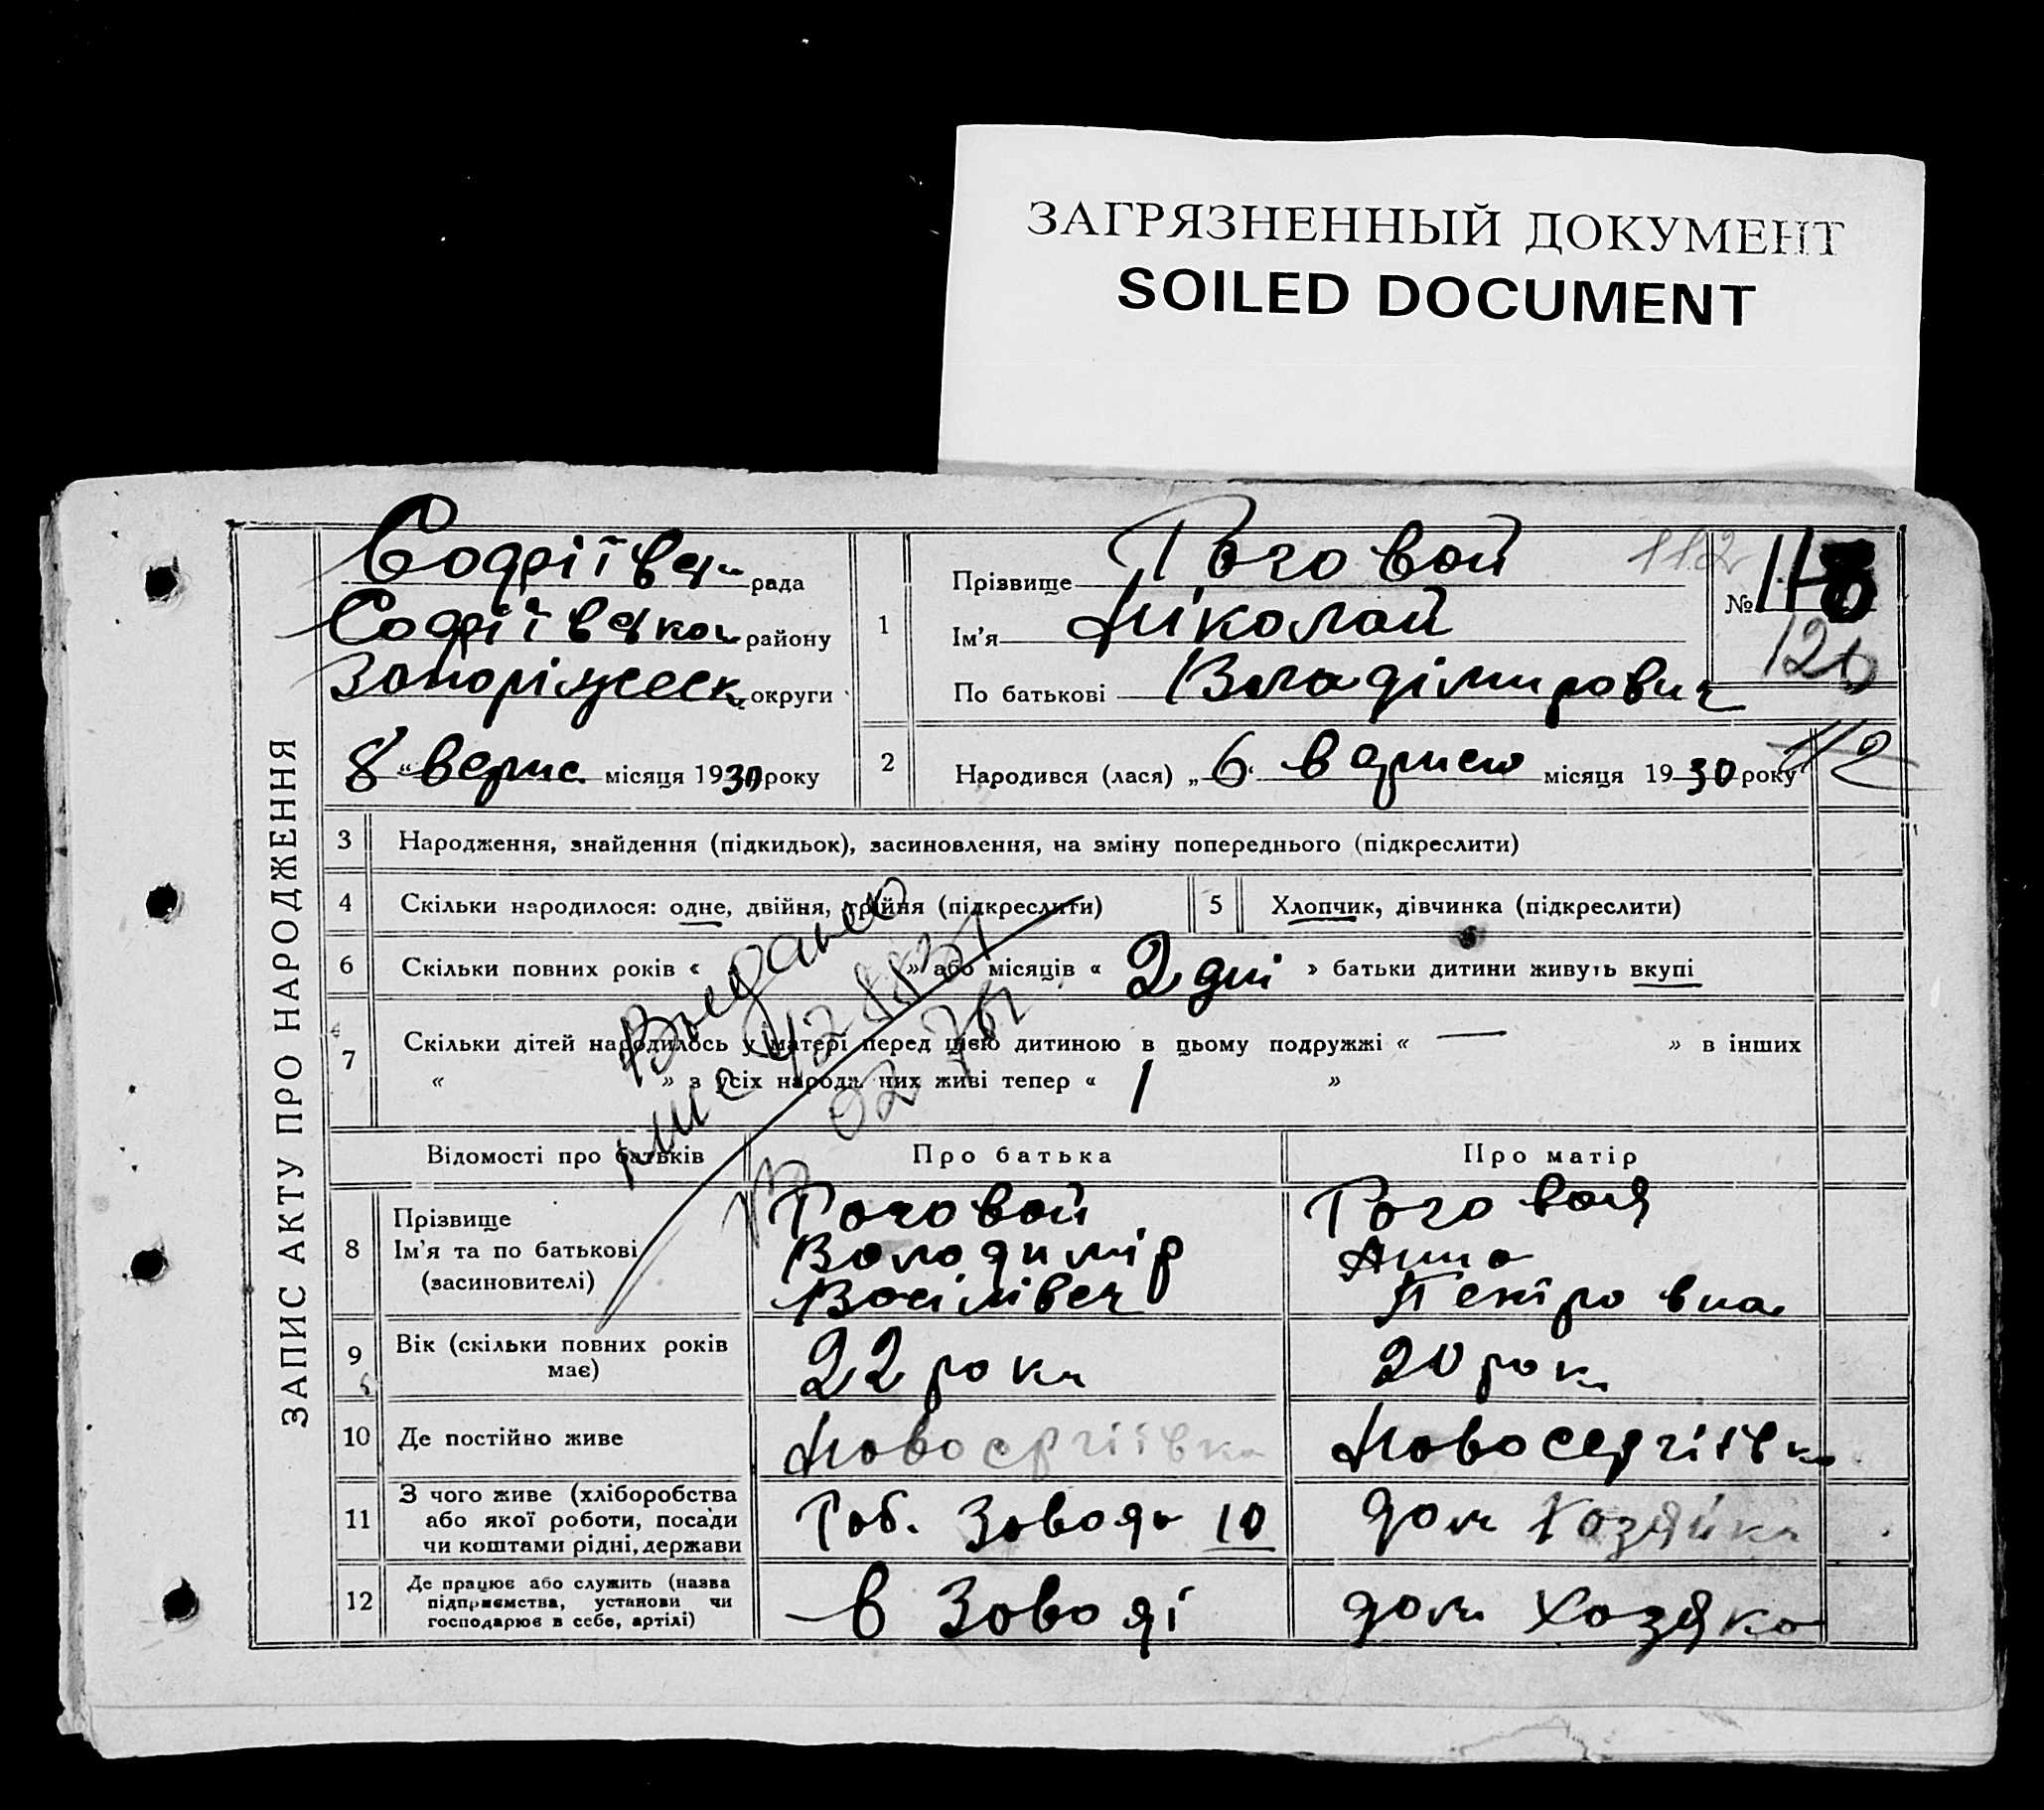 ЗАГРЯЗНЕННЫЙ ДОКУМЕНТ
SOILED DOCUMENT
ЗАПИС АКТУ ПРО НАРОДЖЕННЯ
Софіївськ рада
Софіївском району
Запоріжсск округи
8 " верпс місяця 1930 року
1
Прізвище Роговой
Ім'я Ніколай
По батькові Владімирович
112
№ 118
120
112
2
Народився (лася) „ 6 " вєрпсю місяця 1930 року
3 Народження, знайдення (підкидьок), засиновлення, на зміну попереднього (підкреслити)
4 Скільки народилося: одне, двійня, трійня (підкреслити)
5 Хлопчик, дівчинка (підкреслити)
6 Скільки повних років « » або місяців « 2 дні » батьки дитини живуть вкупі
7 Скільки дітей народилось у матері перед цією дитиною в цьому подружжі « — » в інших
« » з усіх народж. них живі тепер « 1 »
Відомості про батьків Про батька Про матір
8 Прізвище
Ім'я та по батькові
(засиновителі)
Роговой
Володимір
Васілівеч
Роговоя
Анна
Петровна
9 Вік (скільки повних років
має)
22 рокы
20 рок
10 Де постійно живе
Новосергіївка
Новосергіївк
11 З чого живе (хліборобства
або якої роботи, посади
чи коштами рідні, держави
Роб. Зовода 10
дом Хозяйка
12 Де працює або служить (назва
підприємства, установи чи
господарює в себе, артілі)
в Зоводі
дом Хозяка